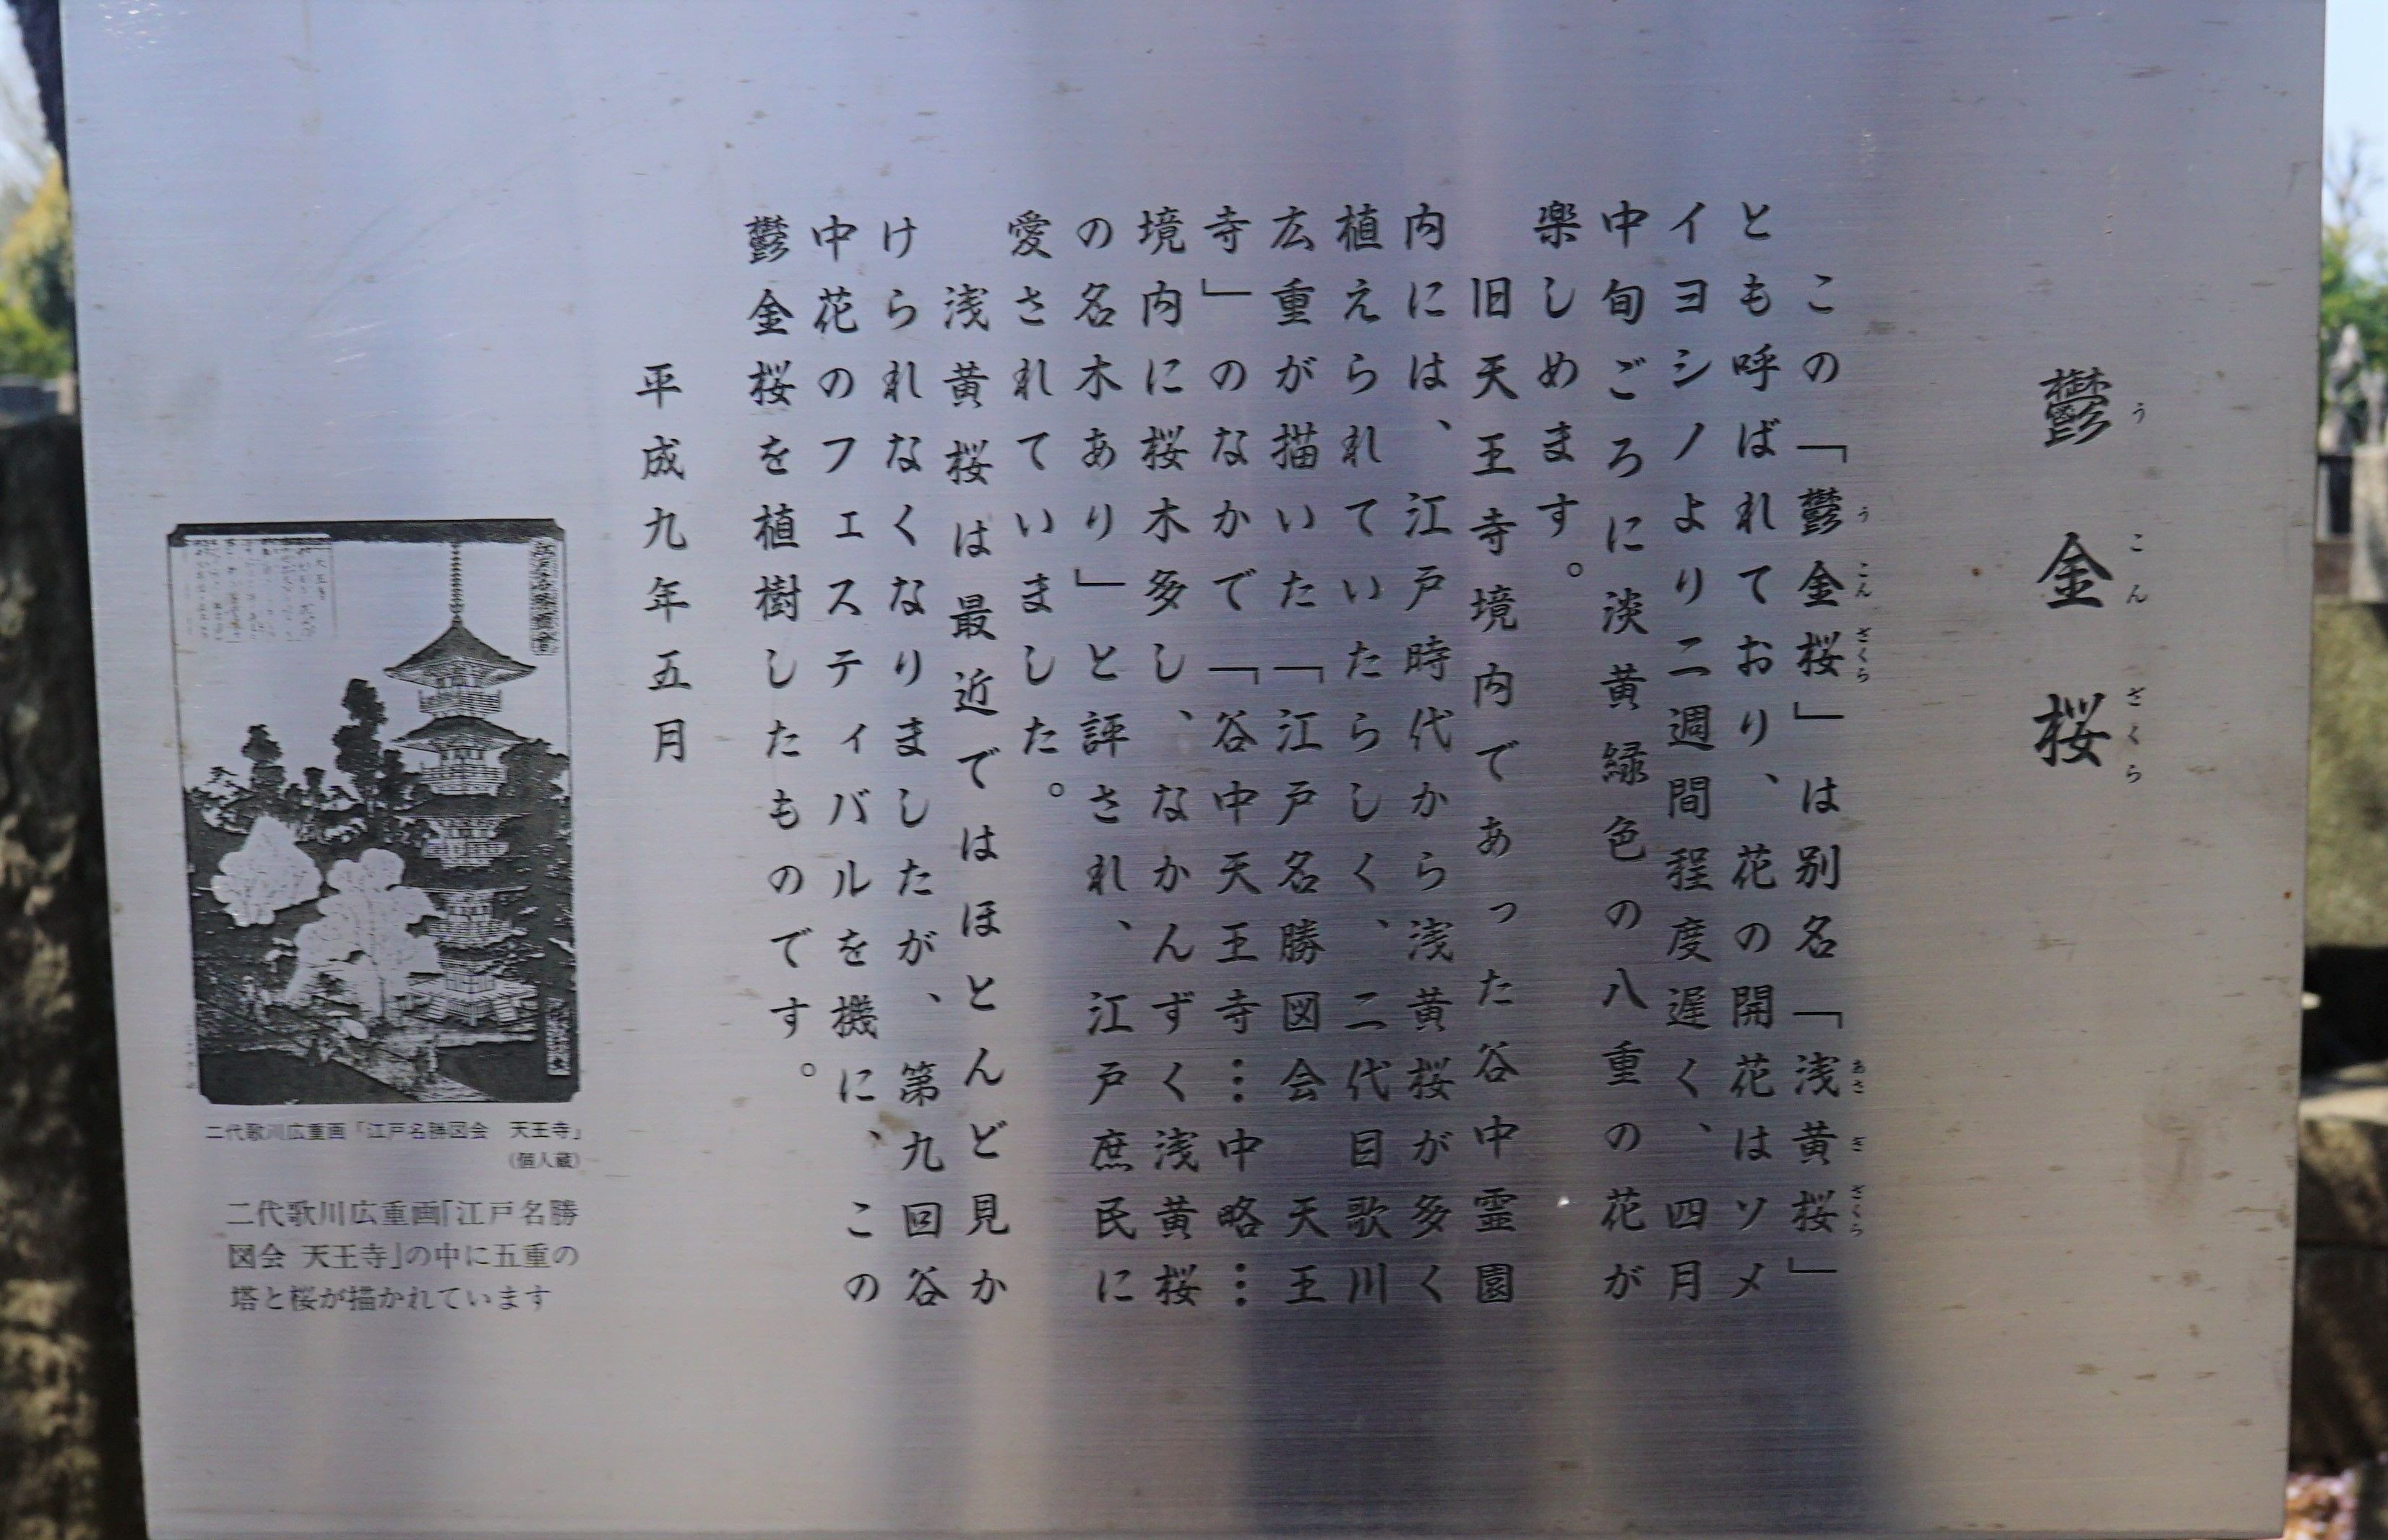 鬱金桜
うこんざくら
この「鬱金桜」は別名「浅黄桜」
うこんざくら
あさぎざくら
とも呼ばれており、花の開花はソメ
イヨシノより二週間程度遅く、四月
中旬ごろに淡黄緑色の八重の花が
楽しめます。
旧天王寺境内であった谷中霊園
内には、江戸時代から浅黄桜が多く
植えられていたらしく、二代目歌川
広重が描いた「江戸名勝図会　天王
寺」のなかで「谷中天王寺…中略…
境内に桜木多し、なかんずく浅黄桜
の名木あり」と評され、江戸庶民に
愛されていました。
浅黄桜は最近ではほとんど見か
けられなくなりましたが、第九回谷
中花のフェスティバルを機に、この
鬱金桜を植樹したものです。
平成九年五月
二代歌川広重画「江戸名勝図会　天王寺」
（個人蔵）
二代歌川広重画「江戸名勝
図会 天王寺」の中に五重の
塔と桜が描かれています